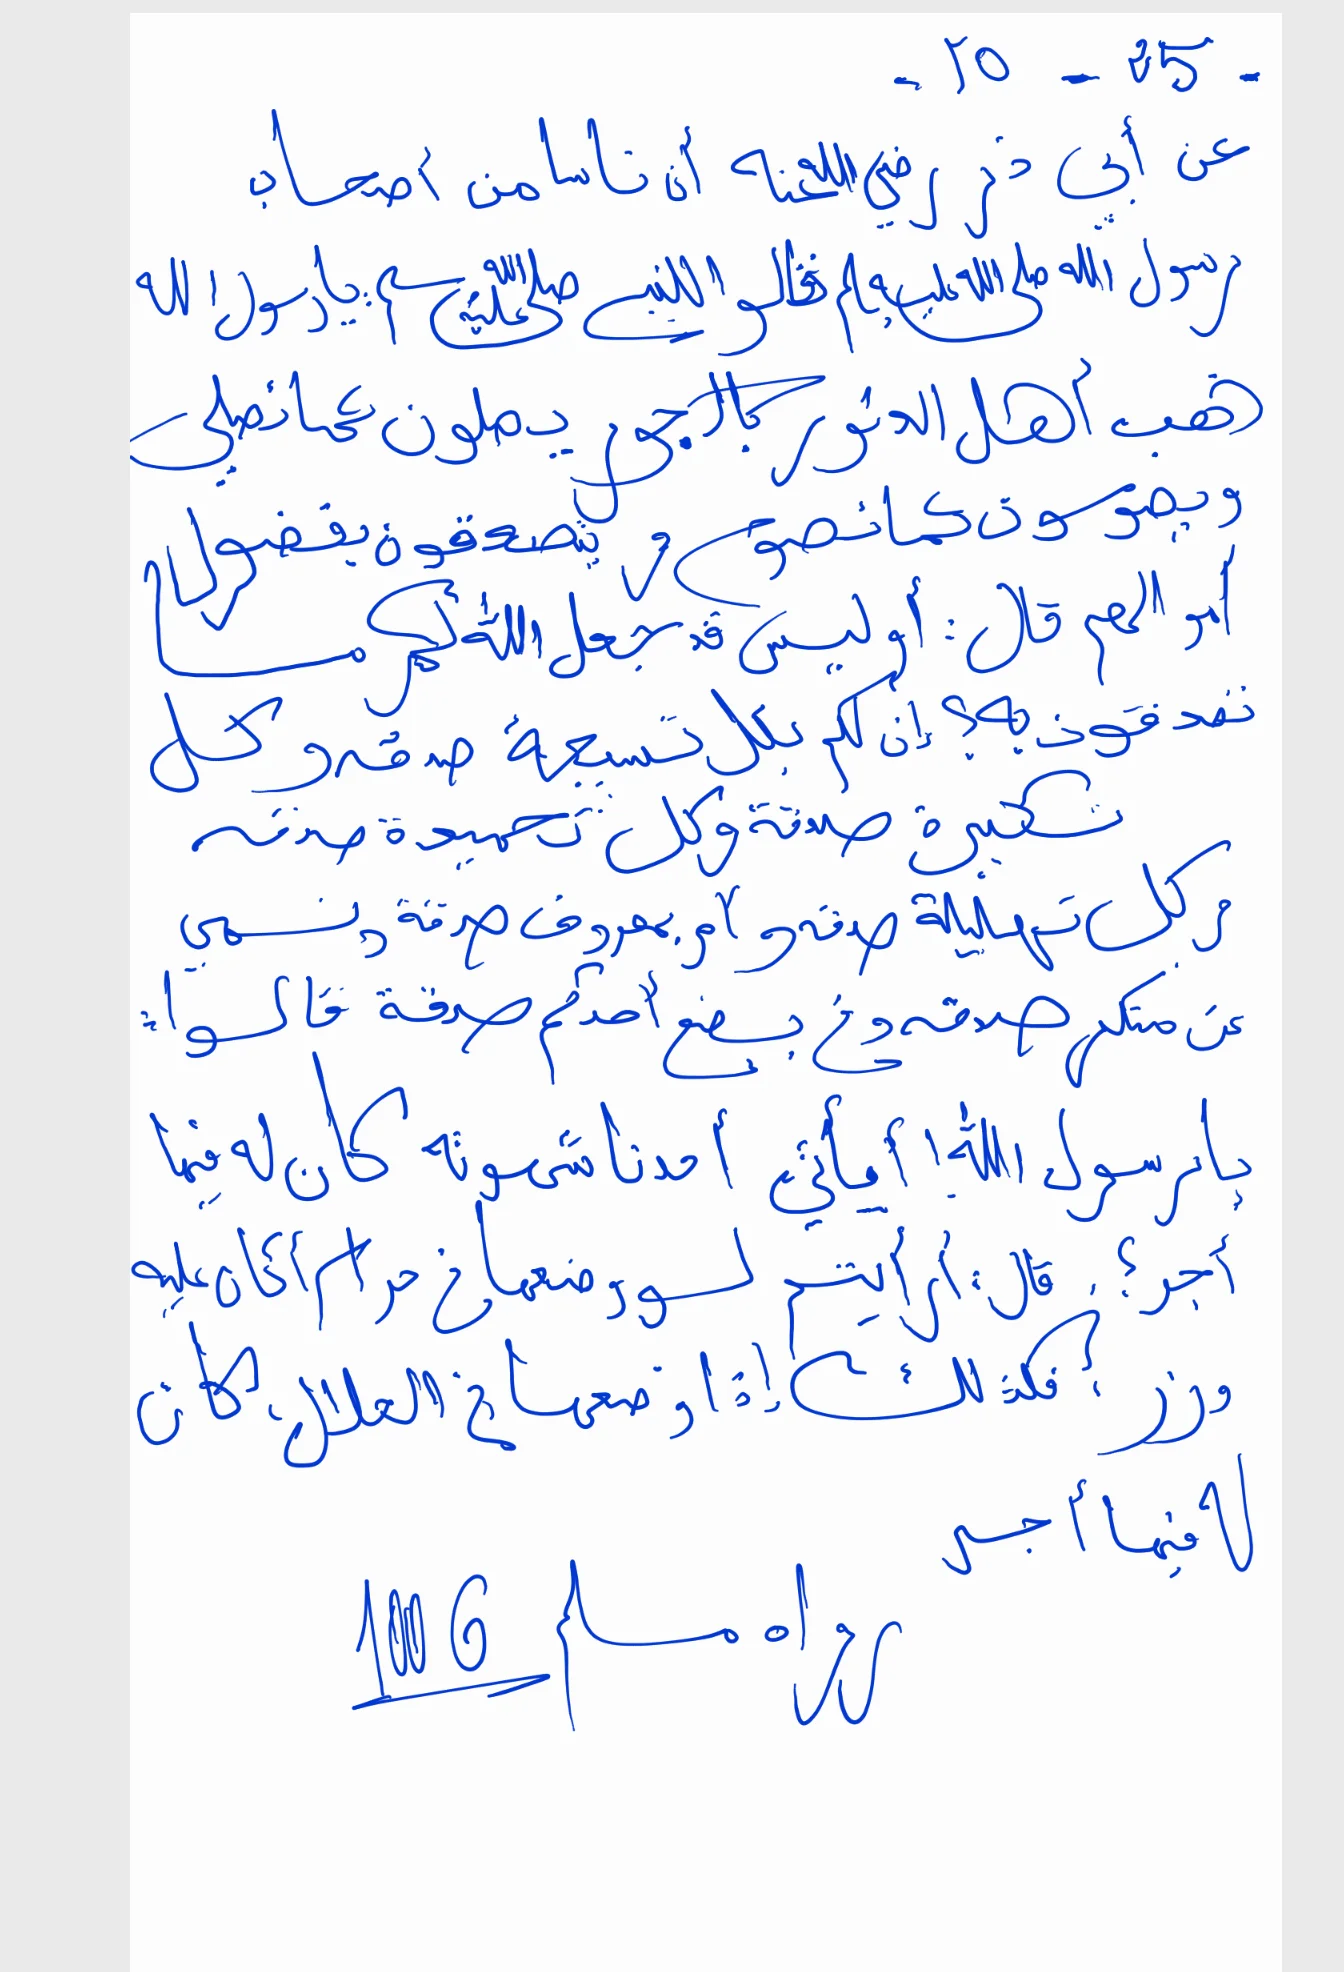 - 25 - ٢٥ -
عن أبي ذر رضي الله عنه أن ناسا من أصحاب
رسول الله صلى الله عليه وسلم قالوا للنبي صلى الله عليه وسلم: يا رسول الله
ذهب أهل الدثور بالأجور يصلون كما نصلي
ويصومون كما نصوم و يتصدقون بفضول
أموالهم قال: أو ليس قد جعل الله لكم ما
تصدقون به؟ إن لكم بكل تسبيحة صدقة وكل
تكبيرة صدقة وكل تحميدة صدقة
وكل تهليلة صدقة و أمر بمعروف صدقة ونهي
عن منكر صدقة وفي بضع أحدكم صدقة قالوا:
يا رسول الله! أيأتي أحدنا شهوته كان له فيها
أجر؟. قال: أرأيتم لو وضعها في حرام أكان عليه
وزر؟ فكذلك إذا وضعها في الحلال، كان
له فيها أجر
رواه مسلم 1006